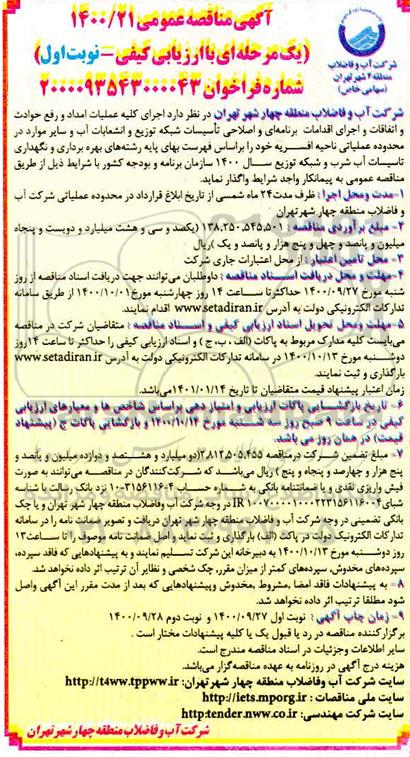 آگهی مناقصه عمومی ۱۴۰۰/۲۱
(یک مرحله‌ای با ارزیابی کیفی – نوبت اول)
شماره فراخوان ۲۰۰۰۰۹۳۵۴۳۰۰۰۰۴۳
شرکت آب و فاضلاب
منطقه ۴ شهر تهران
(سهامی خاص)
شرکت آب و فاضلاب منطقه چهار شهر تهران در نظر دارد اجرای کلیه عملیات امداد و رفع حوادث
و اتفاقات و اجرای اقدامات برنامه‌ای و اصلاحی تأسیسات شبکه توزیع و انشعابات آب و سایر موارد در
محدوده عملیاتی ناحیه افسریه خود را براساس فهرست بهای پایه رشته‌های بهره برداری و نگهداری
تاسیسات آب شرب و شبکه توزیع سال ۱۴۰۰ سازمان برنامه و بودجه کشور با شرایط ذیل از طریق
مناقصه عمومی به پیمانکار واجد شرایط واگذار نماید.
۱-مدت و محل اجرا : ظرف مدت ۲۴ ماه شمسی از تاریخ ابلاغ قرارداد در محدوده عملیاتی شرکت آب
و فاضلاب منطقه چهار شهر تهران
۲- مبلغ برآوردی مناقصه : ۱۳۸,۲۵۰,۵۴۵,۵۰۱ (یکصد و سی و هشت میلیارد و دویست و پنجاه
میلیون و پانصد و چهل و پنج هزار و پانصد و یک) ریال
۳- محل تامین اعتبار : از محل اعتبارات جاری شرکت
۴- مهلت و محل دریافت اسناد مناقصه : داوطلبان می‌توانند جهت دریافت اسناد مناقصه از روز
شنبه مورخ ۱۴۰۰/۰۹/۲۷ حداکثر تا ساعت ۱۴ روز چهارشنبه مورخ ۱۴۰۰/۱۰/۰۱ از طریق سامانه
تدارکات الکترونیکی دولت به آدرس www.setadiran.ir اقدام نمایند.
۵- مهلت و محل تحویل اسناد ارزیابی کیفی و اسناد مناقصه : متقاضیان شرکت در مناقصه
می‌بایست کلیه مدارک مربوط به پاکات (الف ، ب ، ج ) و اسناد ارزیابی کیفی را حداکثر تا ساعت ۱۴روز
دوشنبه مورخ ۱۴۰۰/۱۰/۱۳ در سامانه تدارکات الکترونیکی دولت به آدرس www.setadiran.ir
بارگذاری و ثبت نمایند.
زمان اعتبار پیشنهاد قیمت متقاضیان تا تاریخ ۱۴۰۱/۰۱/۱۴می‌باشد.
۶- تاریخ بازگشایی پاکات ارزیابی و امتیاز دهی براساس شاخص ها و معیارهای ارزیابی
کیفی در ساعت ۹ صبح روز سه شنبه مورخ ۱۴۰۰/۱۰/۱۴ و بازگشایی پاکات ج (پیشنهاد
قیمت) در همان روز می باشد.
۷- مبلغ تضمین شرکت درمناقصه ۲,۸۱۲,۵۰۵,۴۵۵(دو میلیارد و هشتصد و دوازده میلیون و پانصد و
پنج هزار و چهارصد و پنجاه و پنج ) ریال می‌باشد که شرکت‌کنندگان در مناقصه می‌توانند به صورت
فیش واریزی نقدی و یا ضمانتنامه بانکی به شماره حساب
در وجه شرکت آب و فاضلاب منطقه چهار شهر تهران و یا چک
بانکی تضمینی در وجه شرکت آب و فاضلاب منطقه چهار شهر تهران دریافت و تصویر ضمانت نامه را در سامانه
تدارکات الکترونیک دولت در پاکت (الف) بارگذاری و ثبت نماید و اصل ضمانت نامه موصوف را تا ساعت۱۳
روز دوشنبه مورخ ۱۴۰۰/۱۰/۱۳ به دبیرخانه این شرکت تسلیم نمایند و به پیشنهادهایی که فاقد سپرده،
سپرده‌های مخدوش، سپرده‌های کمتر از میزان مقرر، چک شخصی و نظایر آن ترتیب اثر داده نخواهد شد.
۸- به پیشنهادات فاقد امضا ،مشروط ،مخدوش و پیشنهادهایی که بعد از مدت مقرر این آگهی واصل
شود مطلقا ترتیب اثر داده نخواهد شد.
۹- زمان چاپ آگهی : نوبت اول ۱۴۰۰/۰۹/۲۷ و نوبت دوم ۱۴۰۰/۰۹/۲۸
برگزارکننده مناقصه در رد یا قبول یک یا کلیه پیشنهادات مختار است .
سایر اطلاعات وجزئیات در اسناد مناقصه مندرج است.
هزینه درج آگهی در روزنامه به عهده مناقصه‌گزار می‌باشد.
سایت شرکت آب وفاضلاب منطقه چهار شهر تهران: http://t4ww.tppww.ir
سایت ملی مناقصات : http://iets.mporg.ir
سایت شرکت مهندسی: http:tender.nww.co.ir
شرکت آب و فاضلاب منطقه چهار شهر تهران